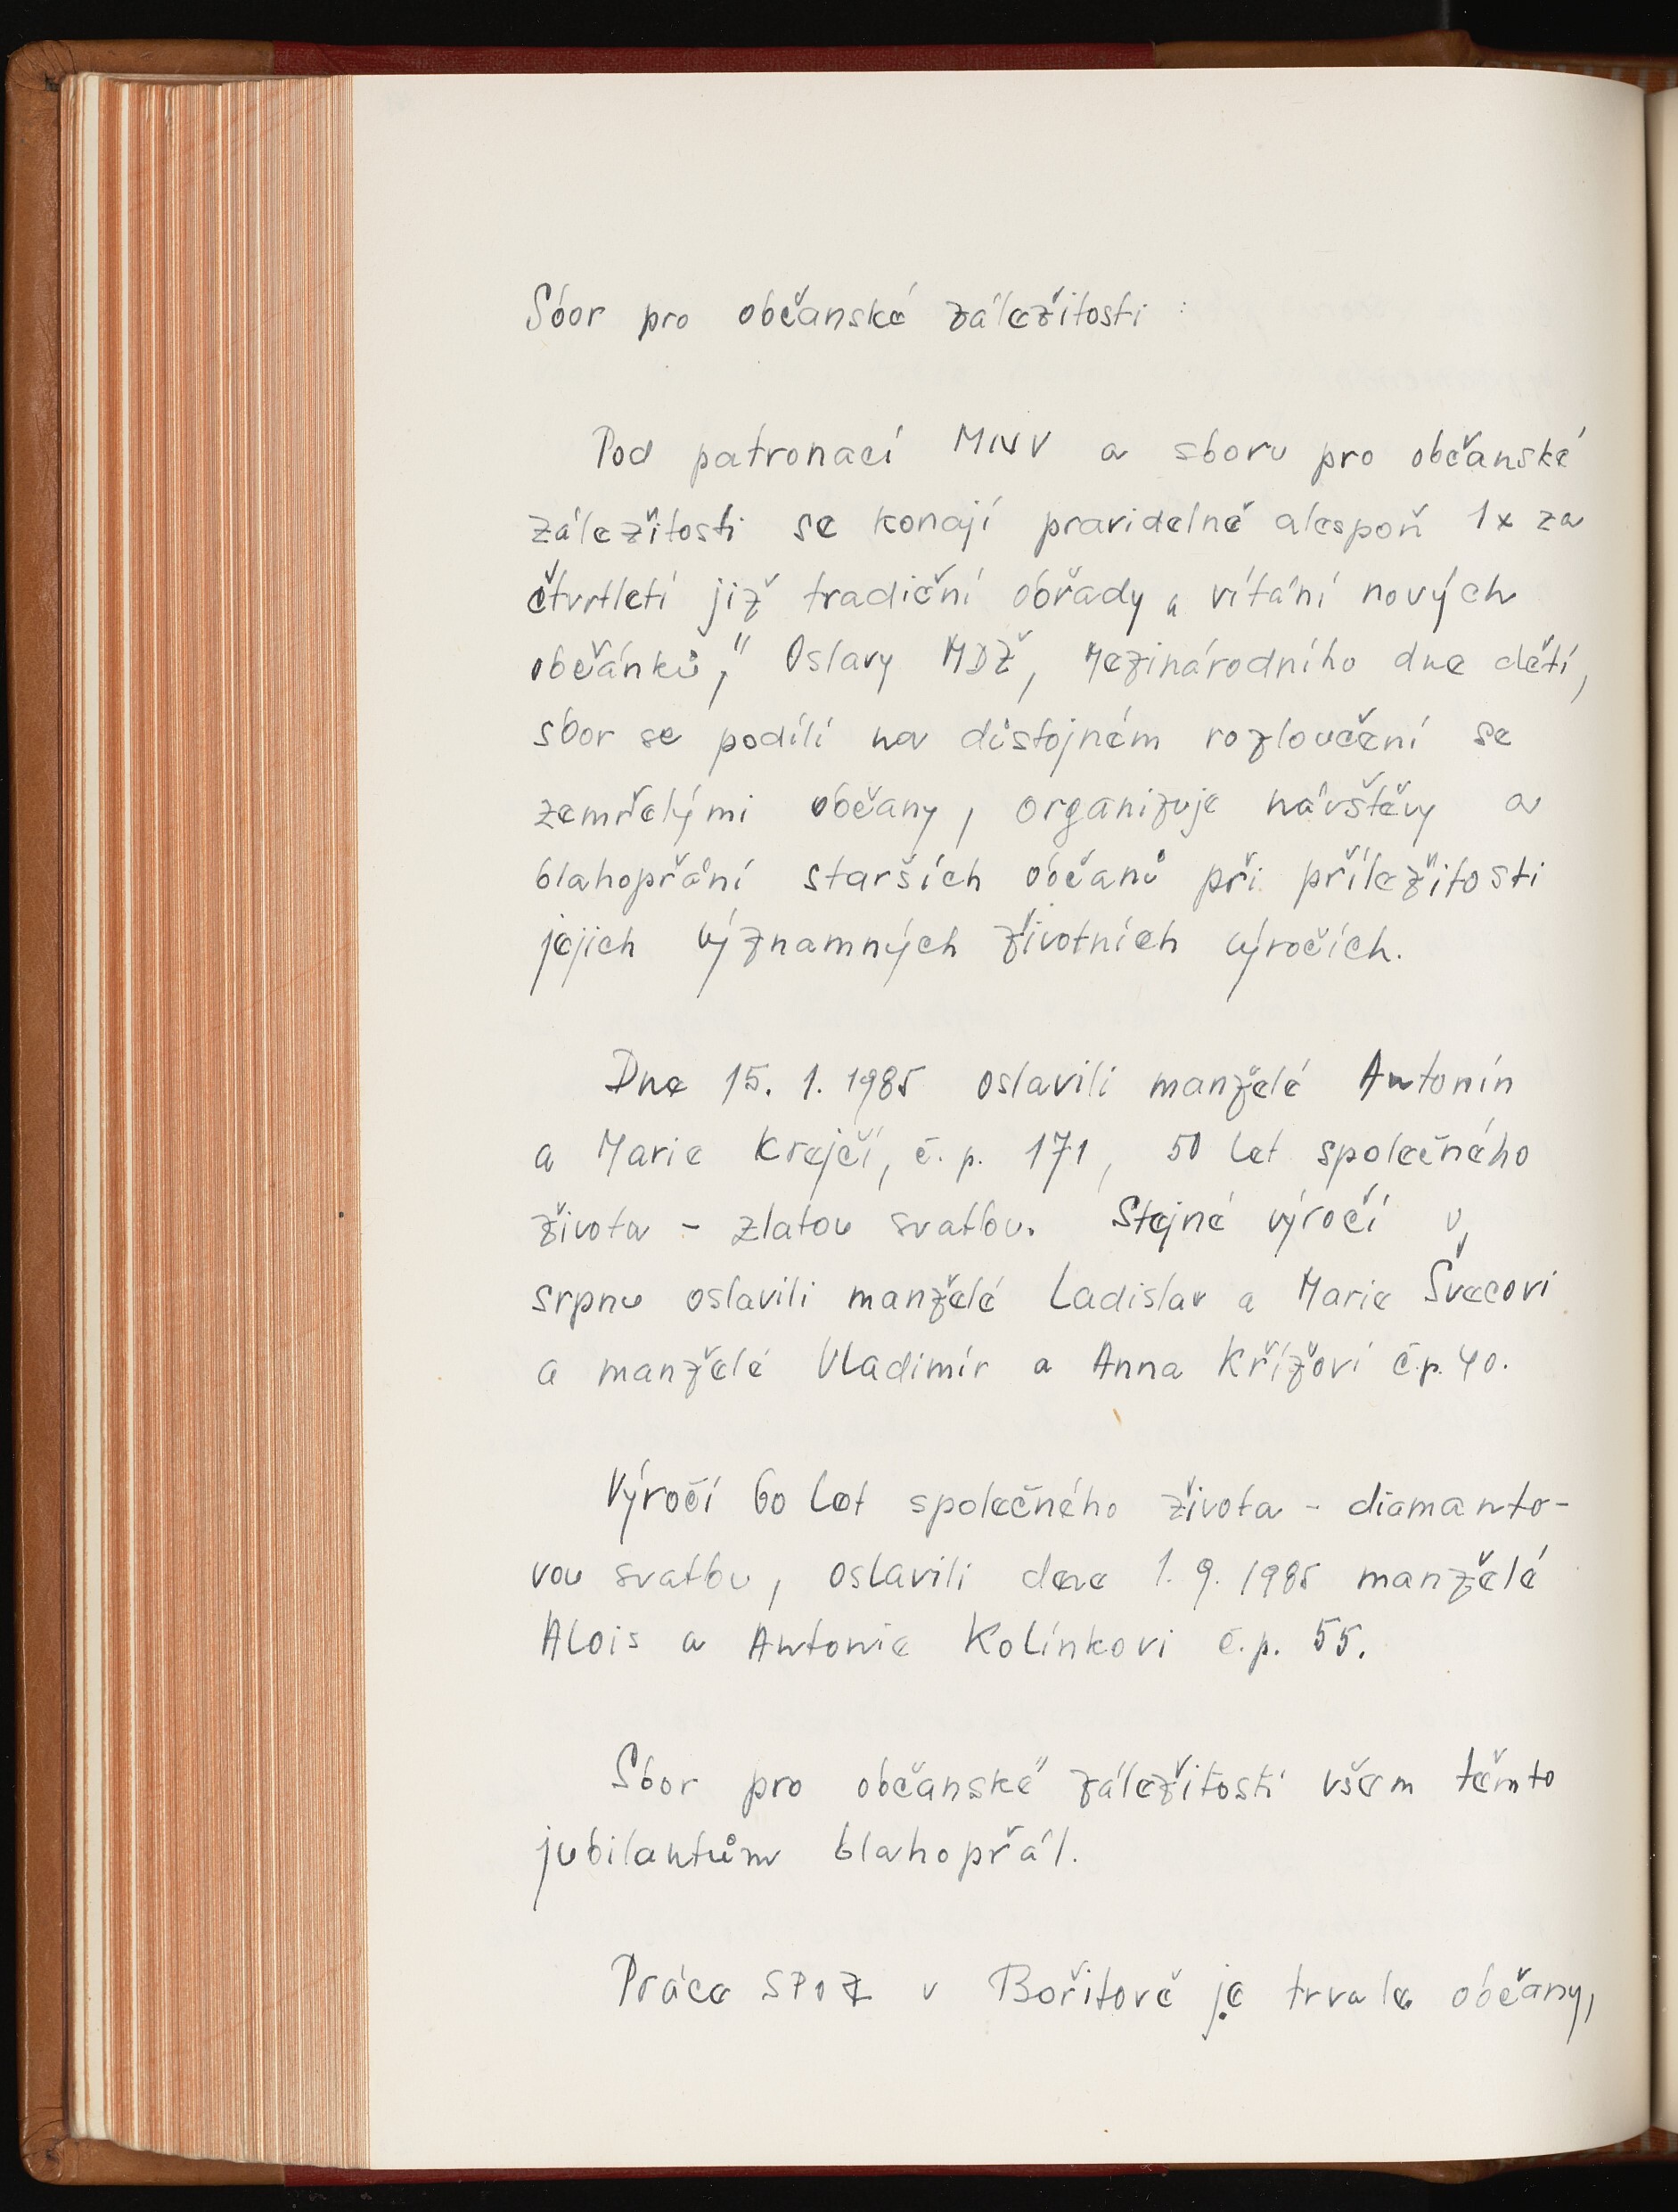 Sbor pro občanské záležitosti :
Pod patronací MNV a sboru pro občanské
záležitosti se konají pravidelně alespoň 1x za
čtvrtletí již tradiční obřady „ vítání nových
občánků," Oslavy MDŽ, Mezinárodního dne dětí,
sbor se podílí na důstojném rozloučení se
zemřelými občany, organizuje návštěvy a
blahopřání starších občanů při příležitosti
jejich významných životních výročích.
Dne 15. 1. 1985 oslavili manželé Antonín
a Marie Krejčí, č. p. 171, 50 let společného
života - zlatou svatbu. Stejné výročí v
srpnu oslavili manželé Ladislav a Marie Švecovi
a manželé Vladimír a Anna Křížovi č.p. 40.
Výročí 60 let společného života - diamanto-
vou svatbu, oslavili dne 1. 9. 1985 manželé
Alois a Antonie Kolínkovi č.p. 55.
Sbor pro občanské záležitosti všem těmto
jubilantům blahopřál.
Práce SPOZ v Bořitově je trvale občany,